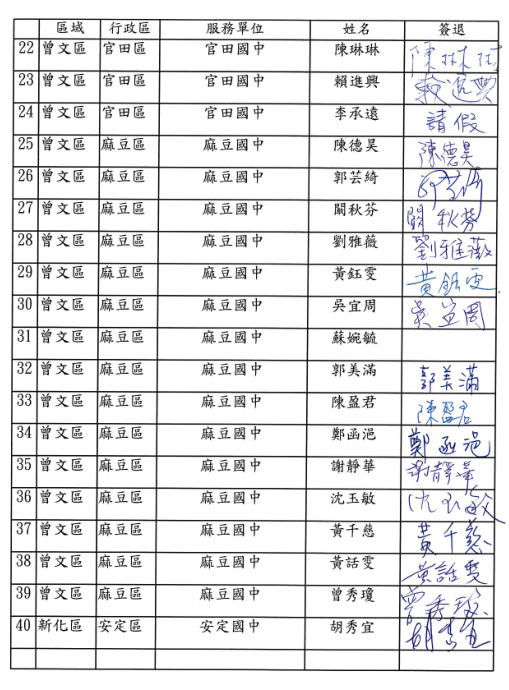 區域 行政區 服務單位 姓名 簽退
22 曾文區 官田區 官田國中 陳琳琳 陳琳琳
23 曾文區 官田區 官田國中 賴進興 賴進興
24 曾文區 官田區 官田國中 李承遠 請假
25 曾文區 麻豆區 麻豆國中 陳德昊 陳德昊
26 曾文區 麻豆區 麻豆國中 郭芸綺
27 曾文區 麻豆區 麻豆國中 闕秋芬 闕秋芬
28 曾文區 麻豆區 麻豆國中 劉雅薇 劉雅薇
29 曾文區 麻豆區 麻豆國中 黃鈺雯 黃鈺雯
30 曾文區 麻豆區 麻豆國中 吳宜周 吳宜周
31 曾文區 麻豆區 麻豆國中 蘇婉毓
32 曾文區 麻豆區 麻豆國中 郭美滿 郭美滿
33 曾文區 麻豆區 麻豆國中 陳盈君 陳盈君
34 曾文區 麻豆區 麻豆國中 鄭函浥 鄭函浥
35 曾文區 麻豆區 麻豆國中 謝靜華 謝靜華
36 曾文區 麻豆區 麻豆國中 沈玉敏 沈玉敏
37 曾文區 麻豆區 麻豆國中 黃千慈 黃千慈
38 曾文區 麻豆區 麻豆國中 黃話雯 黃話雯
39 曾文區 麻豆區 麻豆國中 曾秀瓊 曾秀瓊
40 新化區 安定區 安定國中 胡秀宜 胡秀宜